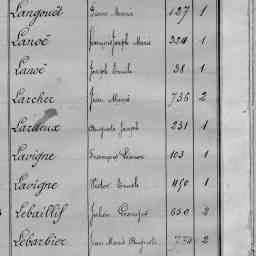 Langouët Pierre Marie 127 1
Lanoë François Joseph Marie 324 1
Lanoë Joseph Emile 38 1
Larcher Jean Marie 736 2
Lardeux Auguste Joseph 231 1
Lavigne François 103 1
Lavigne Victor Emile 450 1
Lebaillif Julien 650 2
Lebarbier Jean Marie Auguste 2